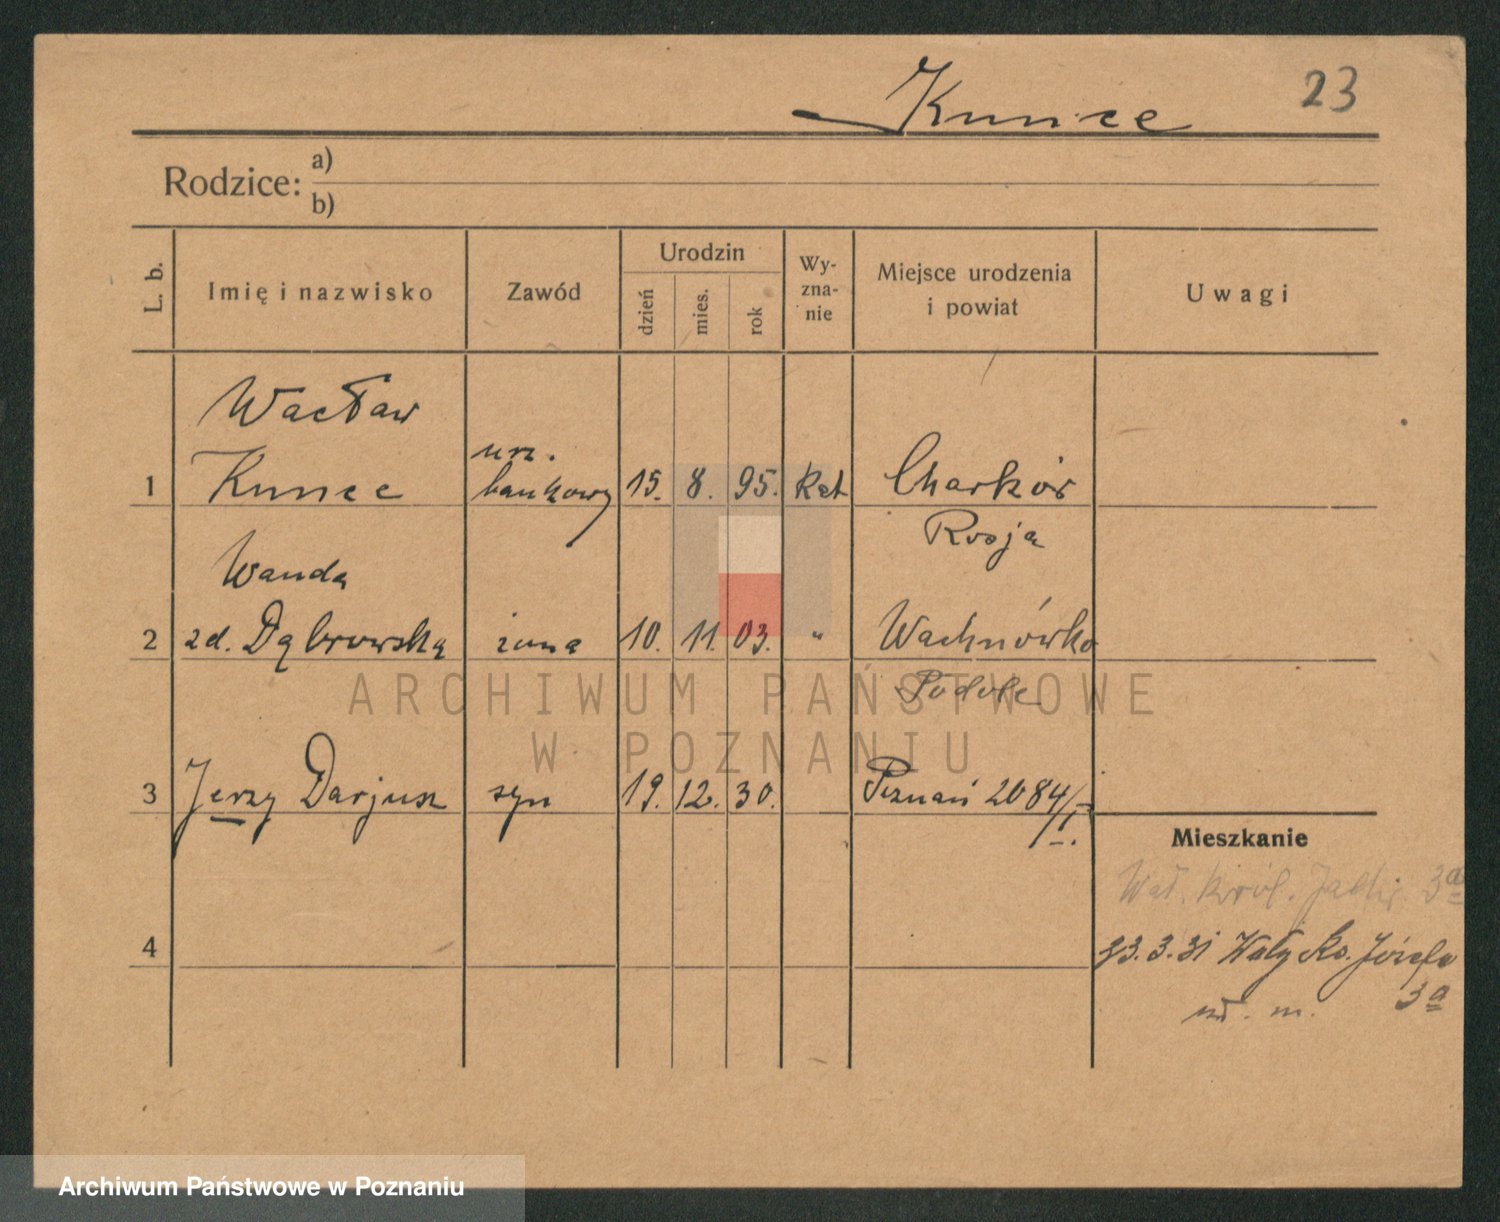 Kunce 23
Rodzice: a)
b)
L. b. Imię i nazwisko Zawód Urodzin dzień mies. rok Wy-zna-nie Miejsce urodzenia i powiat Uwagi
Wacław
1 Kunce urz. bankowy 15. 8. 95. kat Charków
Rosja
Wanda
2 zd. Dąbrowska żona 10. 11. 03. " Wachnówka
Podole
3 Jerzy Darjusz syn 19. 12. 30. Poznań 2084/I.
Mieszkanie
Wał. Król. Jadwi. 3a
4
23.3.31 Wały Ks. Józefa
3a
wł. m.
ARCHIWUM PAŃSTWOWE
W POZNANIU
Archiwum Państwowe w Poznaniu